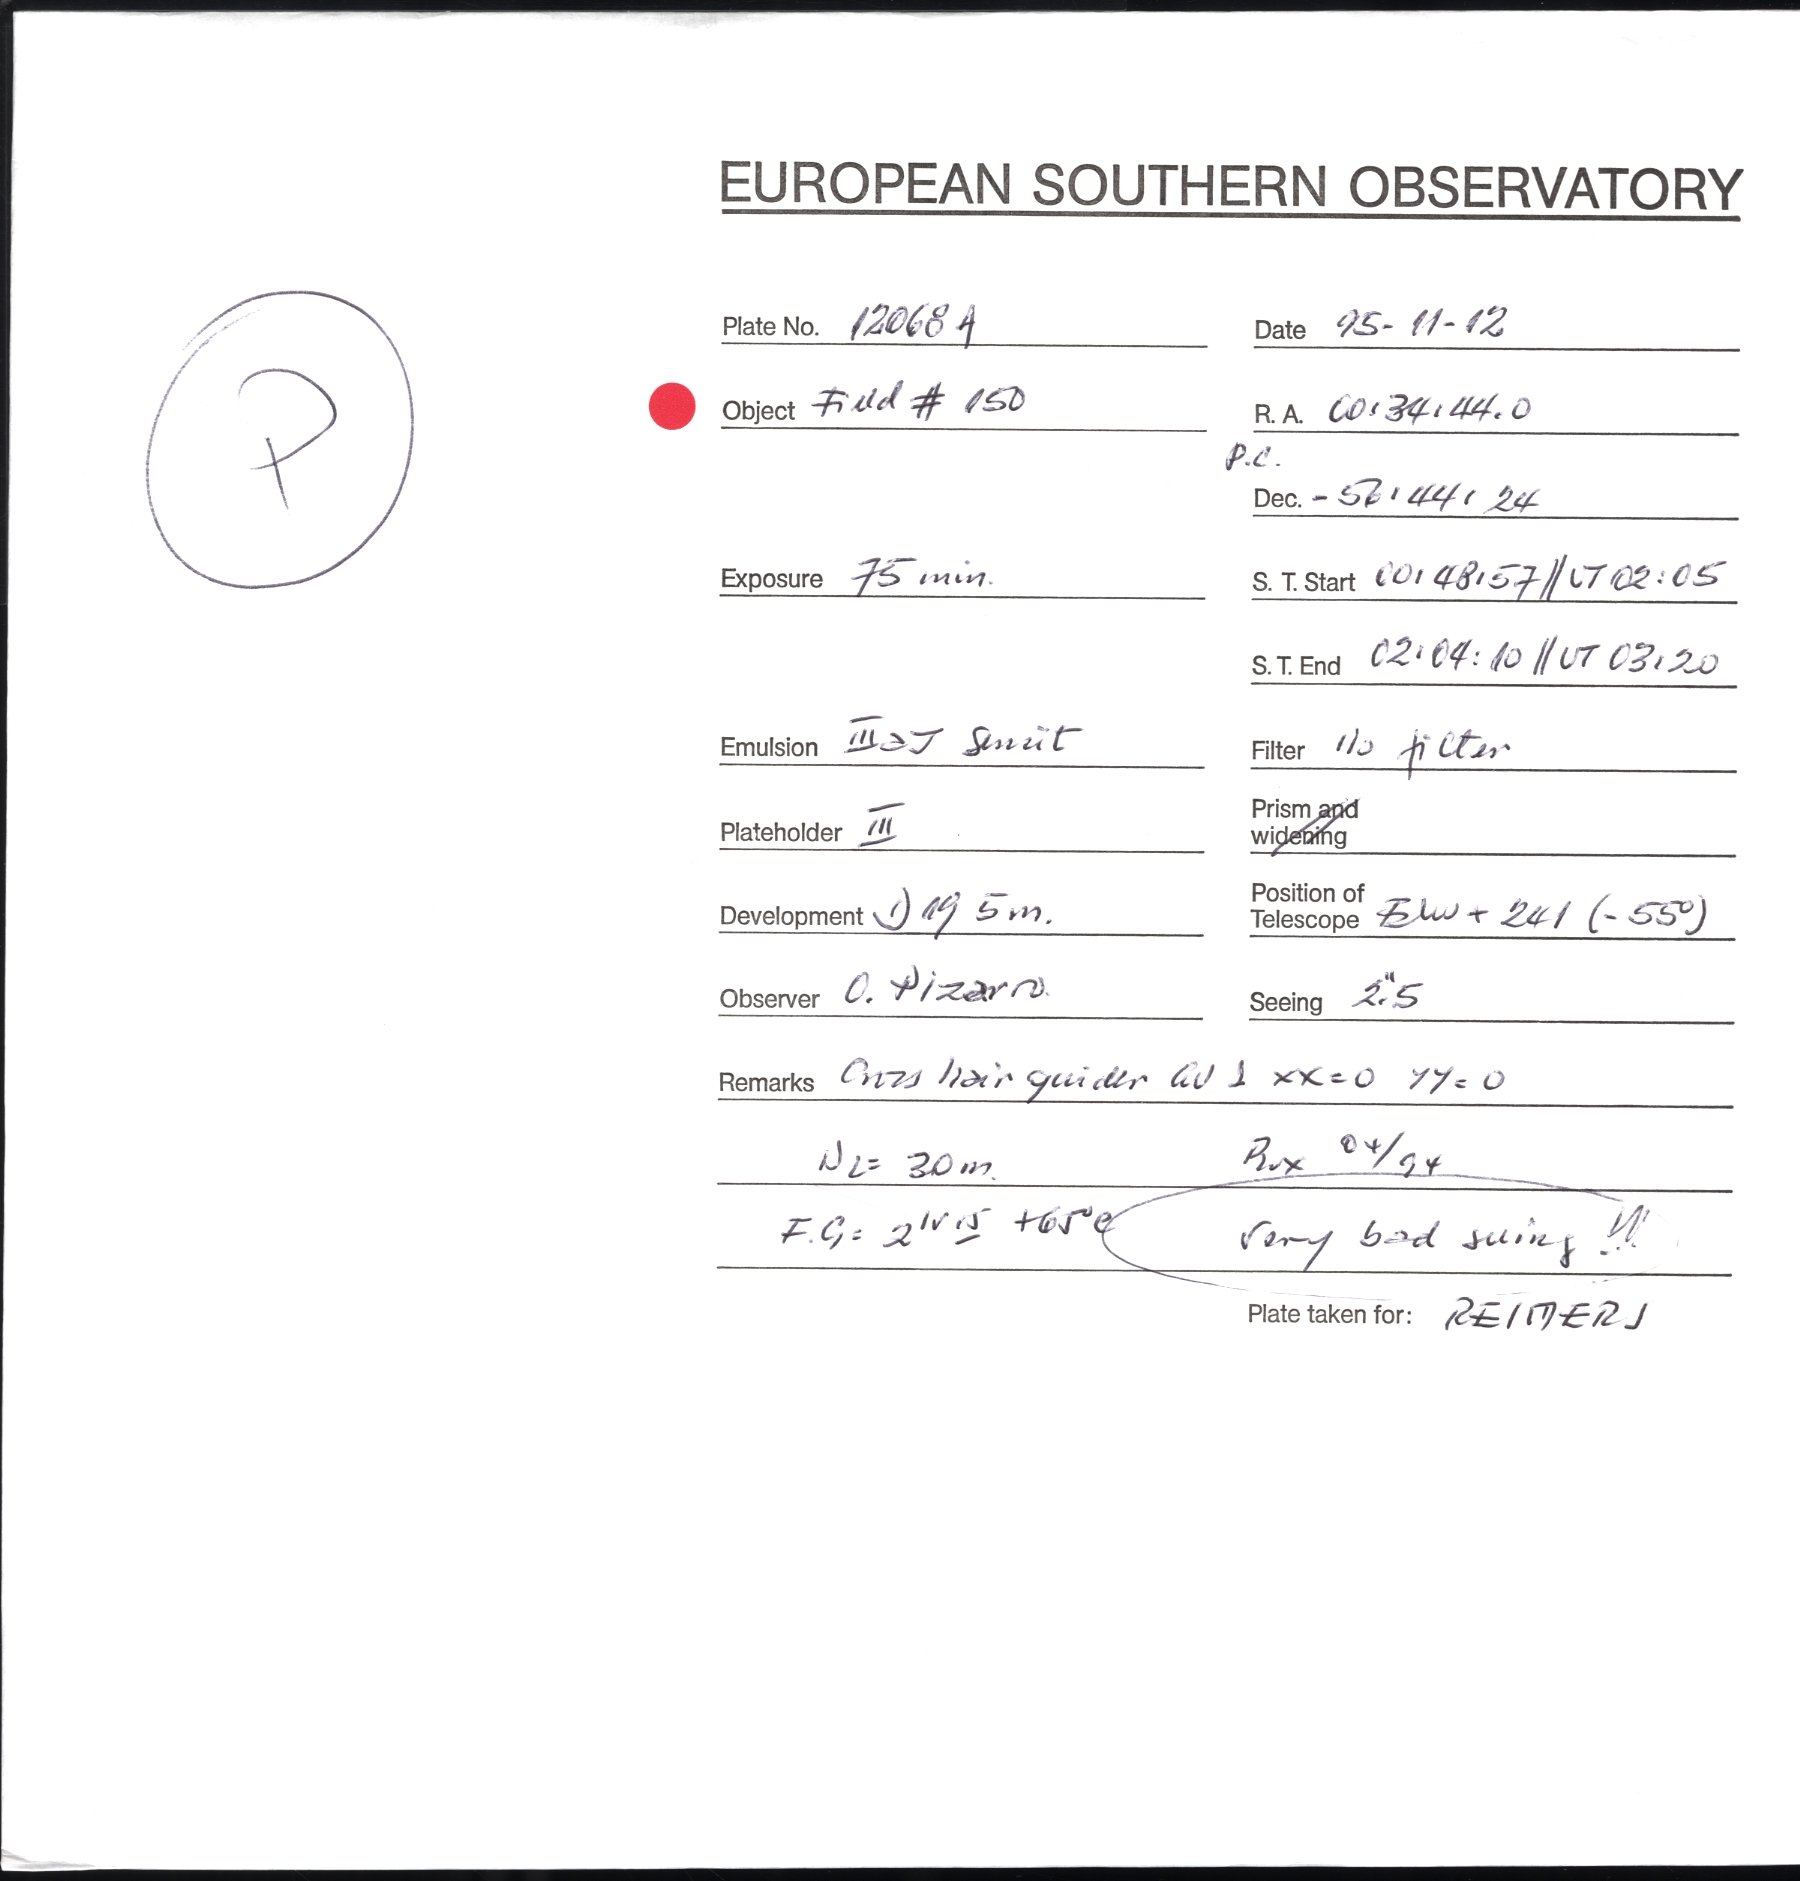 EUROPEAN SOUTHERN OBSERVATORY
P
Plate No. 12068 A Date 95-11-12
Object Field # 150 R. A. 00:34:44.0
P.C.
Dec. - 56:44:24
Exposure 75 min. S. T. Start 00:48:57//UT 02:05
S. T. End 02:04:10//UT 03:20
Emulsion IIIaJ Filter no filter
Plateholder III Prism and
widening
Development 5m. Position of
Telescope EW + 241 (-55°)
Observer O. Pizarro Seeing 2."5
Remarks Cross hair guider xx=0 yy=0
N2= 30m.
F.G= +65°C very bad seeing !!!
Plate taken for: REIMERS